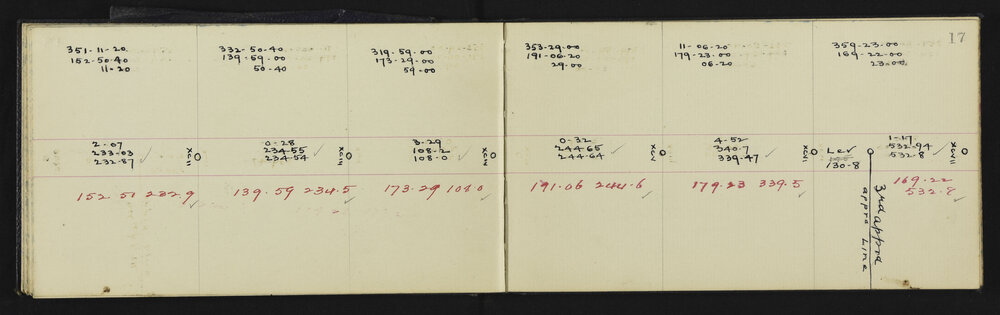 17
351-11-20
152-50-40
11-20
332-50-40
139-59-00
50-40
319-59-00
173-29-00
59-00
353-29-00
191-06-20
29-00
11-06-20
179-23-00
06-20
359-23-00
169-22-00
23-00
2-07
233-03
232-87
XCII
0-28
234-55
234-54
XCIII
3-29
108-2
108-0
XCIV
0-32
244-65
244-64
XCV
4-52
340-7
339-47
XCVI
Lev
130-8
1-17
532-94
532-8
XCVII
152.51 232.9
139.59 234.5
173.29 108.0
191.06 244.6
179.23 339.5
169.22
532.8
3rd appro
appro Line